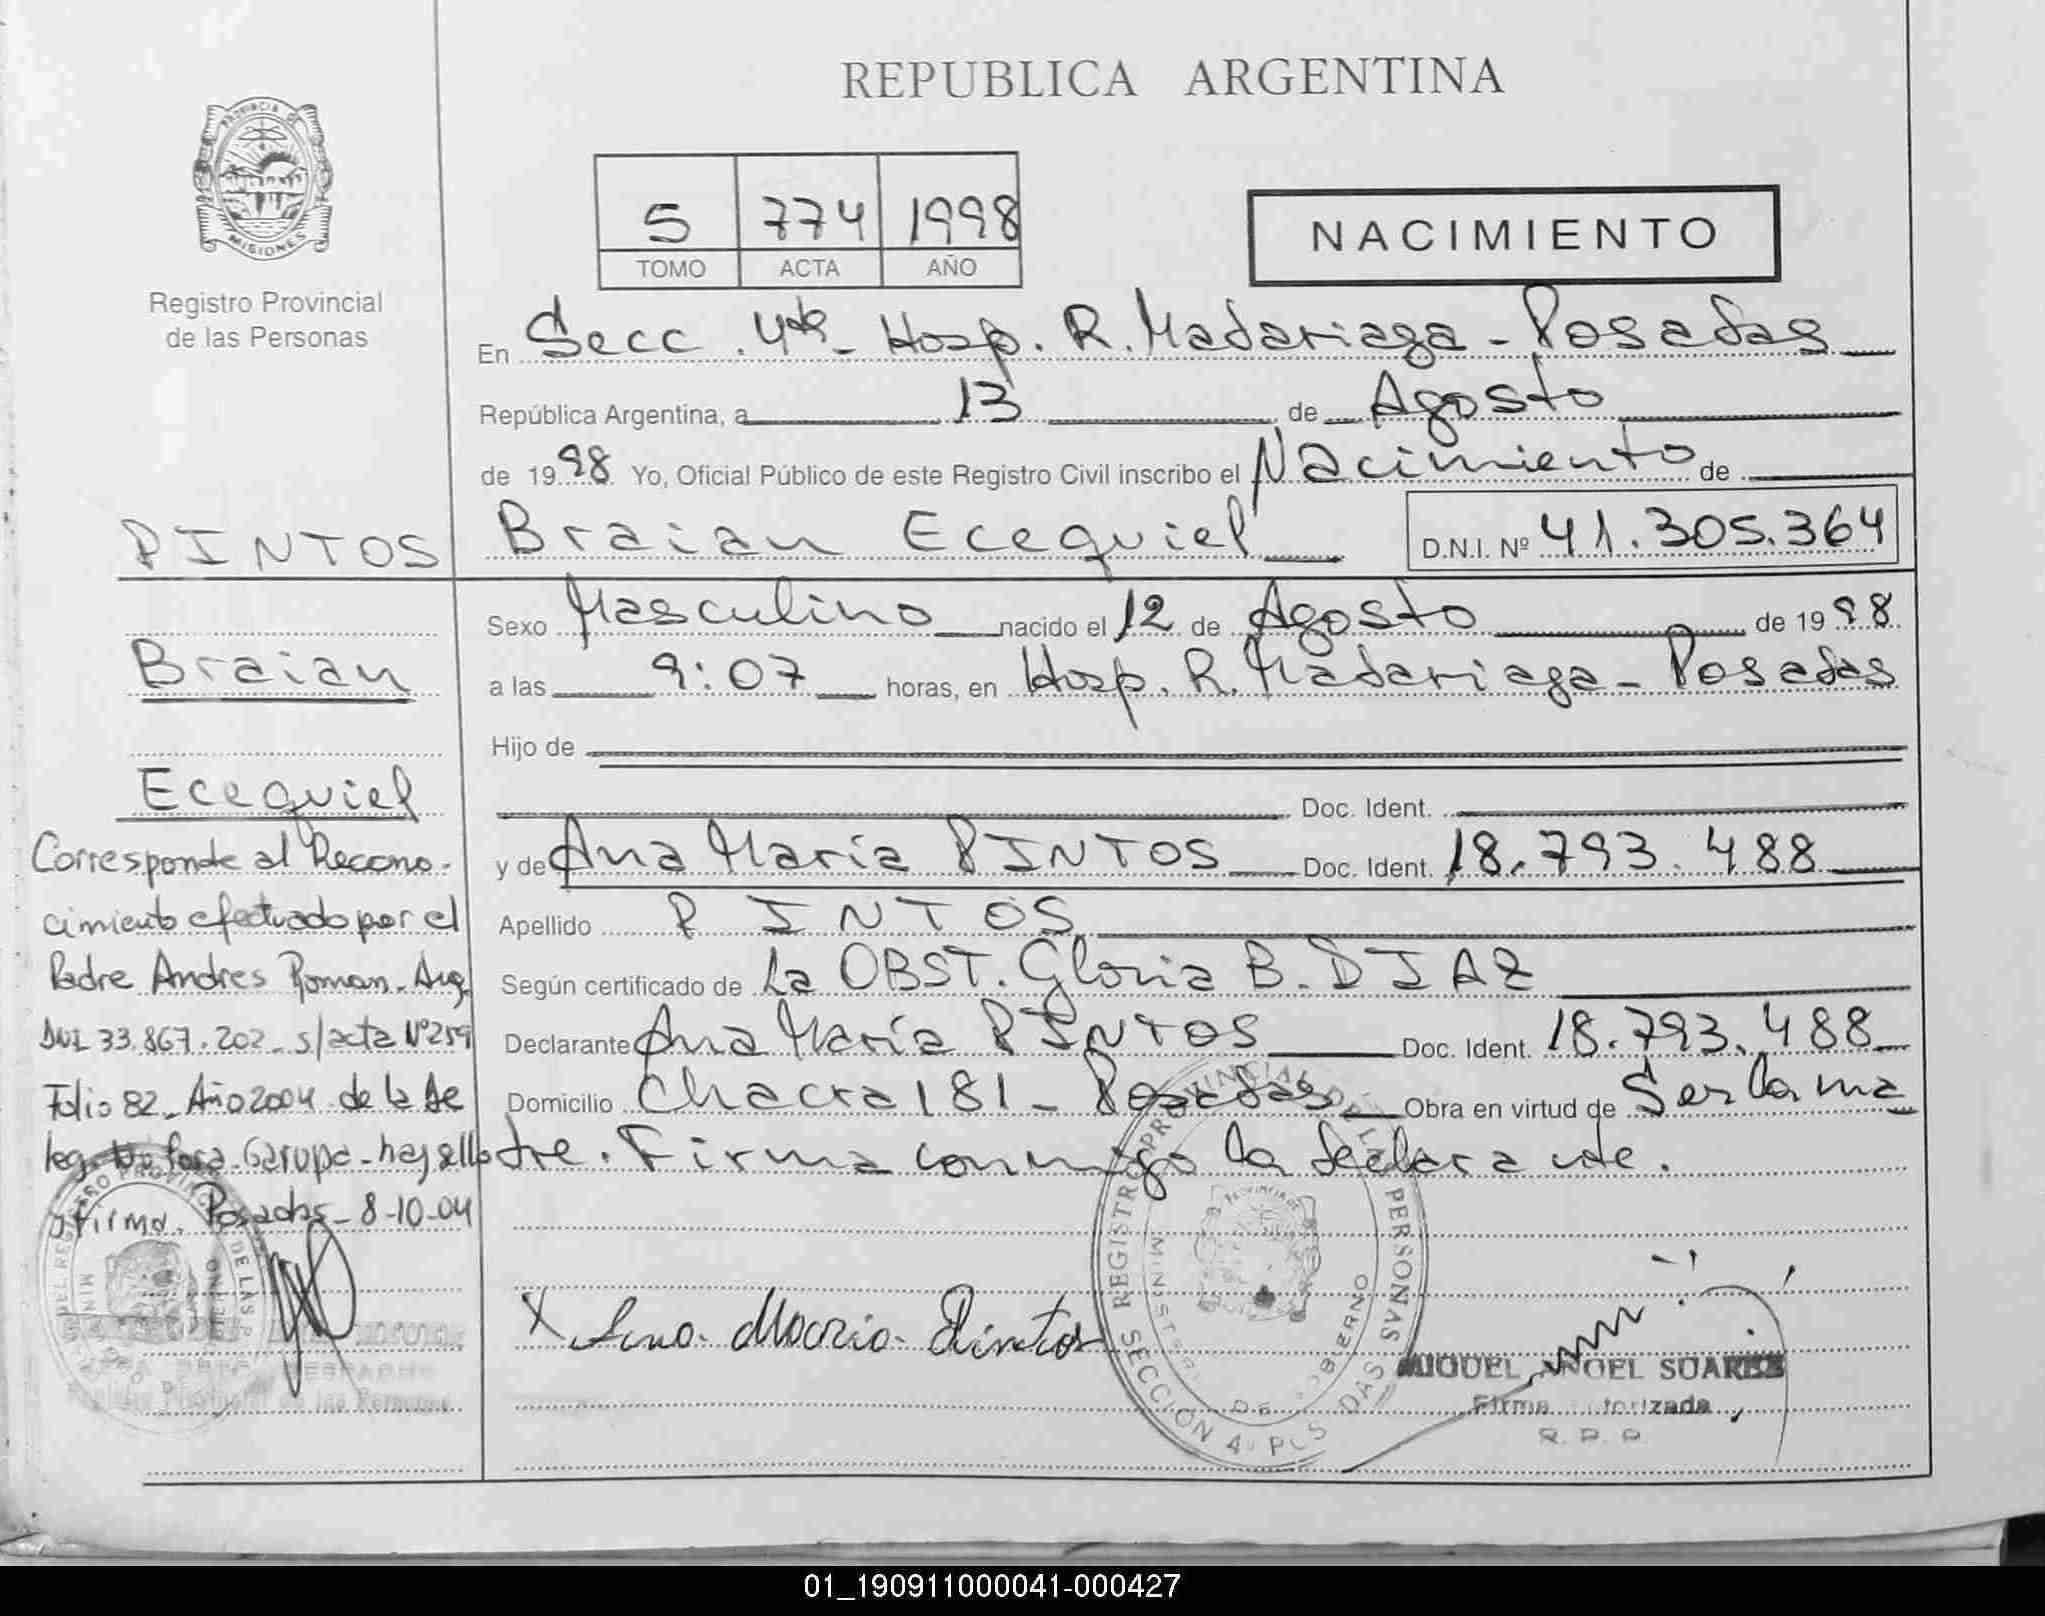 REPUBLICA ARGENTINA
PROVINCIA DE
MISIONES
Registro Provincial
de las Personas
5 774 1998
TOMO ACTA AÑO
NACIMIENTO
En Secc. 4ta - Hosp. R. Madariaga - Posadas
República Argentina, a 13 de Agosto
de 1998 Yo, Oficial Público de este Registro Civil inscribo el Nacimiento de
Braian Ecequiel D.N.I. Nº 41.305.364
Sexo Masculino nacido el 12 de Agosto de 1998
a las 9:07 horas, en Hosp. R. Madariaga - Posadas
Hijo de
Doc. Ident.
y de Ana María PINTOS Doc. Ident. 18.793.488
Apellido PINTOS
Según certificado de La OBST. Gloria B. DIAZ
Declarante Ana María PINTOS Doc. Ident. 18.793.488
Domicilio Chacra 181 - Posadas Obra en virtud de Ser la ma
dre. Firma conmigo la declarante.
X Ana Maria Pintos
REGISTRO PROVINCIAL DE LAS PERSONAS
MINISTERIO DE GOBIERNO
SECCIÓN 4ª
MIGUEL ANGEL SUAREZ
Firma Autorizada
R. P. P.
PINTOS
Braian
Ecequiel
Corresponde al Recono-
cimiento efectuado por el
Padre Andres Roman. Arg
DNI 33.867.202 s/acta Nº259
Folio 82 - Año 2004 de la De
leg. Garupa - hay sello
y firma. Posadas - 8-10-04
Registro Provincial de las Personas
01_190911000041-000427